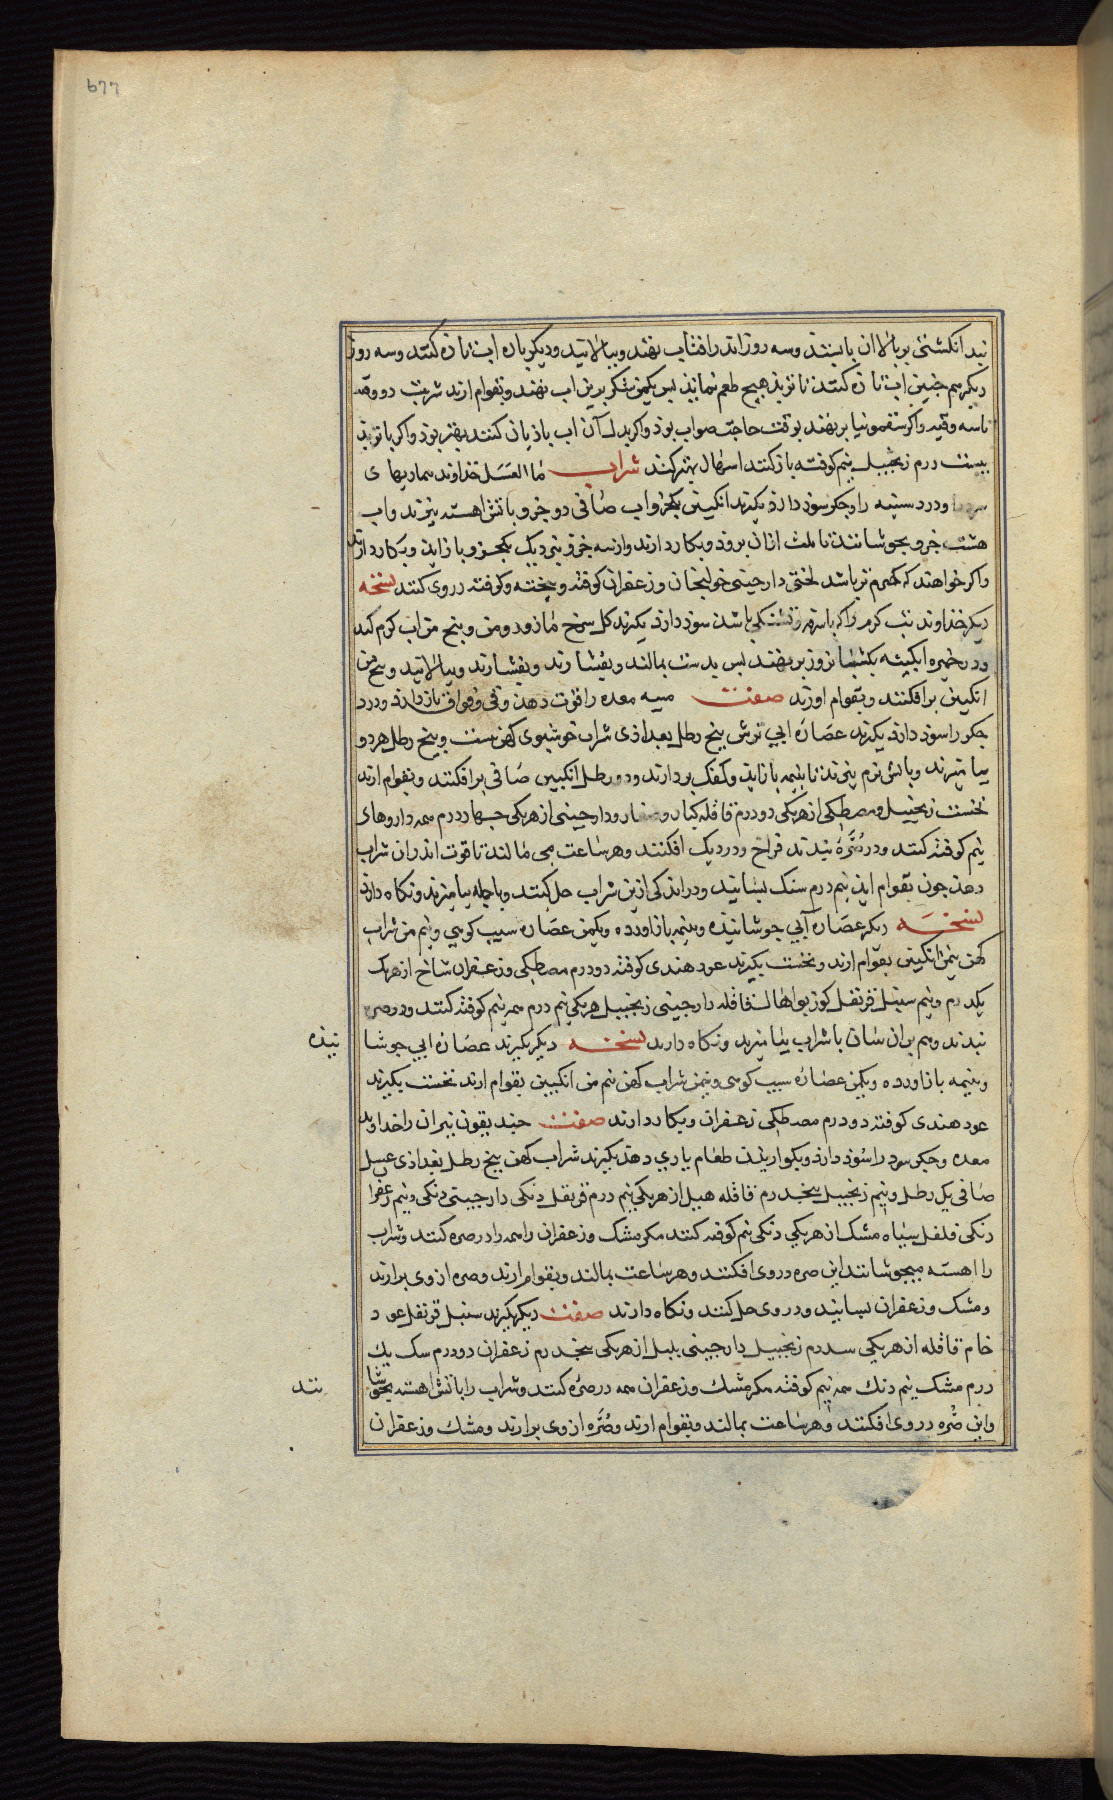 677
نید انکشتی بر بالا ان بایستد وسه روز اندر افتاب نهند وبپالایید ودیکرباره اب تازه کنند وسه روز
دیکر هم جنین اب تازه کنند تا تربد هیچ طعم نماند پس یکمن شکر برین اب نهند وبقوام ارند شربت دو وقیه
تا سه وقیه واکر سقمونیا بر نهند بوقت حاجت صواب بوذ واکر بدل آن اب باذیان کنند بهتر بوذ واکر با تربد
بیست درم زنجبیل نیم کوفته باز کنند اسهال بهتر کند شراب ما العسل خذاوند بیماریهای
سرد را ودرد سینه را وجکر سوذ دارذ بکیرند انکبین یکجزو اب صافی دو جزو وباتش اهسته بپزند واب
هشت جزو بجوشانند تا ثلث ازان بروذ وبکار دارند واز سه جزو نیز دیک یکجزو باز اید وبکار دارند
واکر خواهند که کرم تر باشد لختی دارجینی خولنجان وزعفران کوفته وبیخته وکوفته در روی کنند نسخه
دیکر خذاوند تب کرم را که با سرفه وتشنکی باشد سوذ دارد بکیرند کل سرخ تازه دو من وپنج من اب کرم کنند
ودر خمره ابکینه یکشبانروز بر نهند بس بدست بمالند وبفشارند وبفشارند وبپالایند وپنج من
انکبین برافکنند وبقوام اورند صفت میبه معده را قوت دهد وقی وفواق باز دارد ودرد
جکر را سوذ دارد بکیرند عصاره ابی ترش پنج رطل بغداذی شراب خوشبوی کهن بیست وپنج رطل هر دو
بیامیزند وباتش نرم بپزند تا بنیمه باز اید وکفک بردارند ودو رطل انکبین صافی برافکنند وبقوام ارند
نخست زنجبیل ومصطکی از هریکی دو درم قاقله کبار وصغار ودارجینی از هریکی جهار درم همه داروهای
نیم کوفته کنند ودر صُرّهٔ بندند فراخ ودر دیک افکنند وهر ساعت می مالند تا قوت اندران شراب
دهذ جون بقوام ایذ نیم درم سنک بسایند ودر اندکی ازین شراب حل کنند وباجمله بیامیزند ونکاه دارند
نسخه دیکر عصاره آبی جوشانیذه وبنیمه بازاورده ویکمن عصاره سیب کوهی ونیم من شراب
کهن نیمن انکبین بقوام ارند ونخست بکیرند عود هندی کوفته دو درم مصطکی وزعفران شاخ از هریک
یکدرم ونیم سنبل قرنفل کوزبوا هال قاقله دارجینی زنجبیل هریکی نیم درم همه نیم کوفته کنند ودر صره
بندند وهم بران سان با شراب بیامیزند ونکاه دارند نسخه دیکر بکیرند عصاره ابی جوشا
نیذه
وبنیمه بازاورده ویکمن عصاره سیب کوهی ونیمن شراب کهن نیم من انکبین بقوام ارند نخست بکیرند
عود هندی کوفته دو درم مصطکی زعفران وبکار دارند صفت خندیقون نیران را خذاوند
معده وجکر سرد را سوذ دارذ وبکواریذن طعام یاری دهذ بکیرند شراب کهن پنج رطل بغداذی عسل
صافی یک رطل ونیم زنجبیل پنجدرم قاقله هیل از هریکی نیم درم قرنفل دنکی دارجینی دنکی ونیم زعفران
دنکی فلفل سیاه مشک از هریکی دنکی نیم کوفته کنند مکر مشک وزعفران را همه را در صره کنند وشراب
را اهسته میجوشانند این صره در روی افکنند وهر ساعت بمالند وبقوام ارند وصره از وی برارند
ومشک وزعفران بسایند ودر وی حل کنند ونکاه دارند صفت دیکر بکیرند سنبل قرنفل عود
خام قاقله از هریکی سه درم زنجبیل دارجینی بلبل از هریکی پنجدرم زعفران دو درم سک یک
درم مشک نیم دنک همه نیم کوفته مکر مشک وزعفران همه در صره کنند وشراب را باتش اهسته بجوشا
نند
واین صُره در روی افکنند وهر ساعت بمالند وبقوام ارند وصُرّه از وی برارند ومشک وزعفران